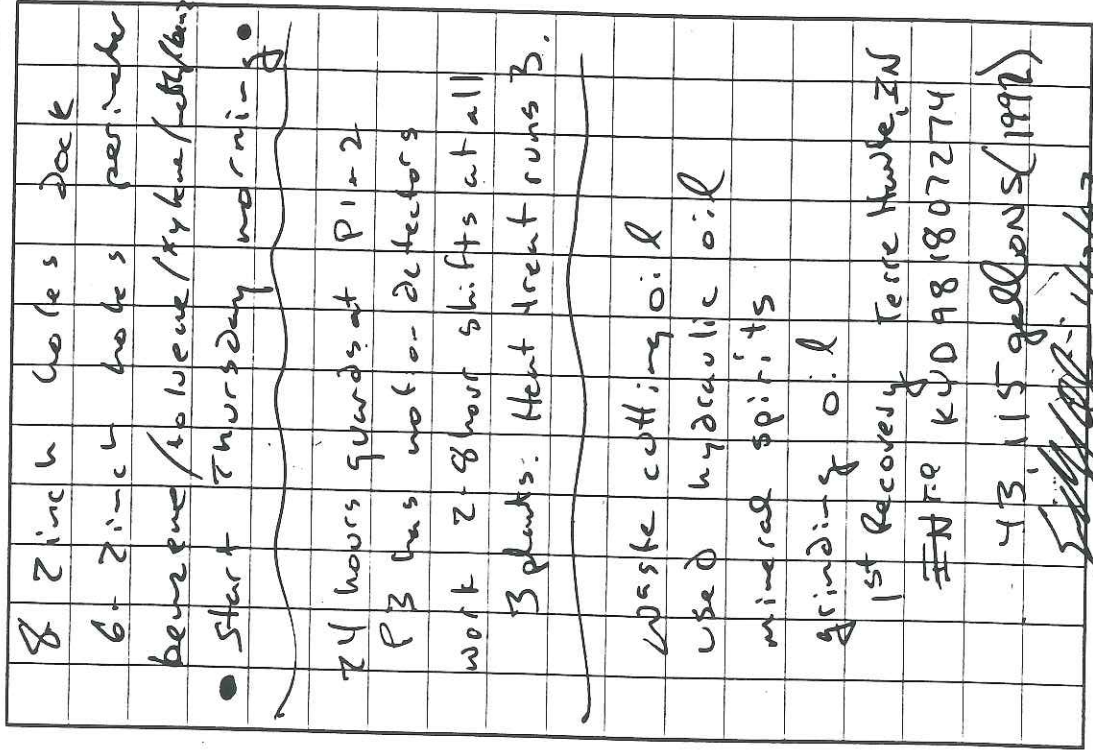 8 2 inch holes Dock
6 - 2 inch holes perimeter
benzene/toluene/xylene/ethylbenz
• Start Thursday morning •
24 hours guards at P1 + 2
P3 has motion detectors
work 2-8 hour shifts at all
3 plants. Heat treat runs 3.
waste cutting oil
used hydraulic oil
mineral spirits
grinding oil
1st Recovery Terre Haute, IN
KYD 981807274
43, 115 gallons (1992)